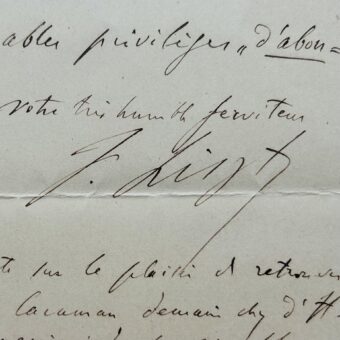 ables priviléges „d'abon=
votre très humble serviteur
F. Liszt
sur le plaisir de retrouver
Caraman demain chez d'H